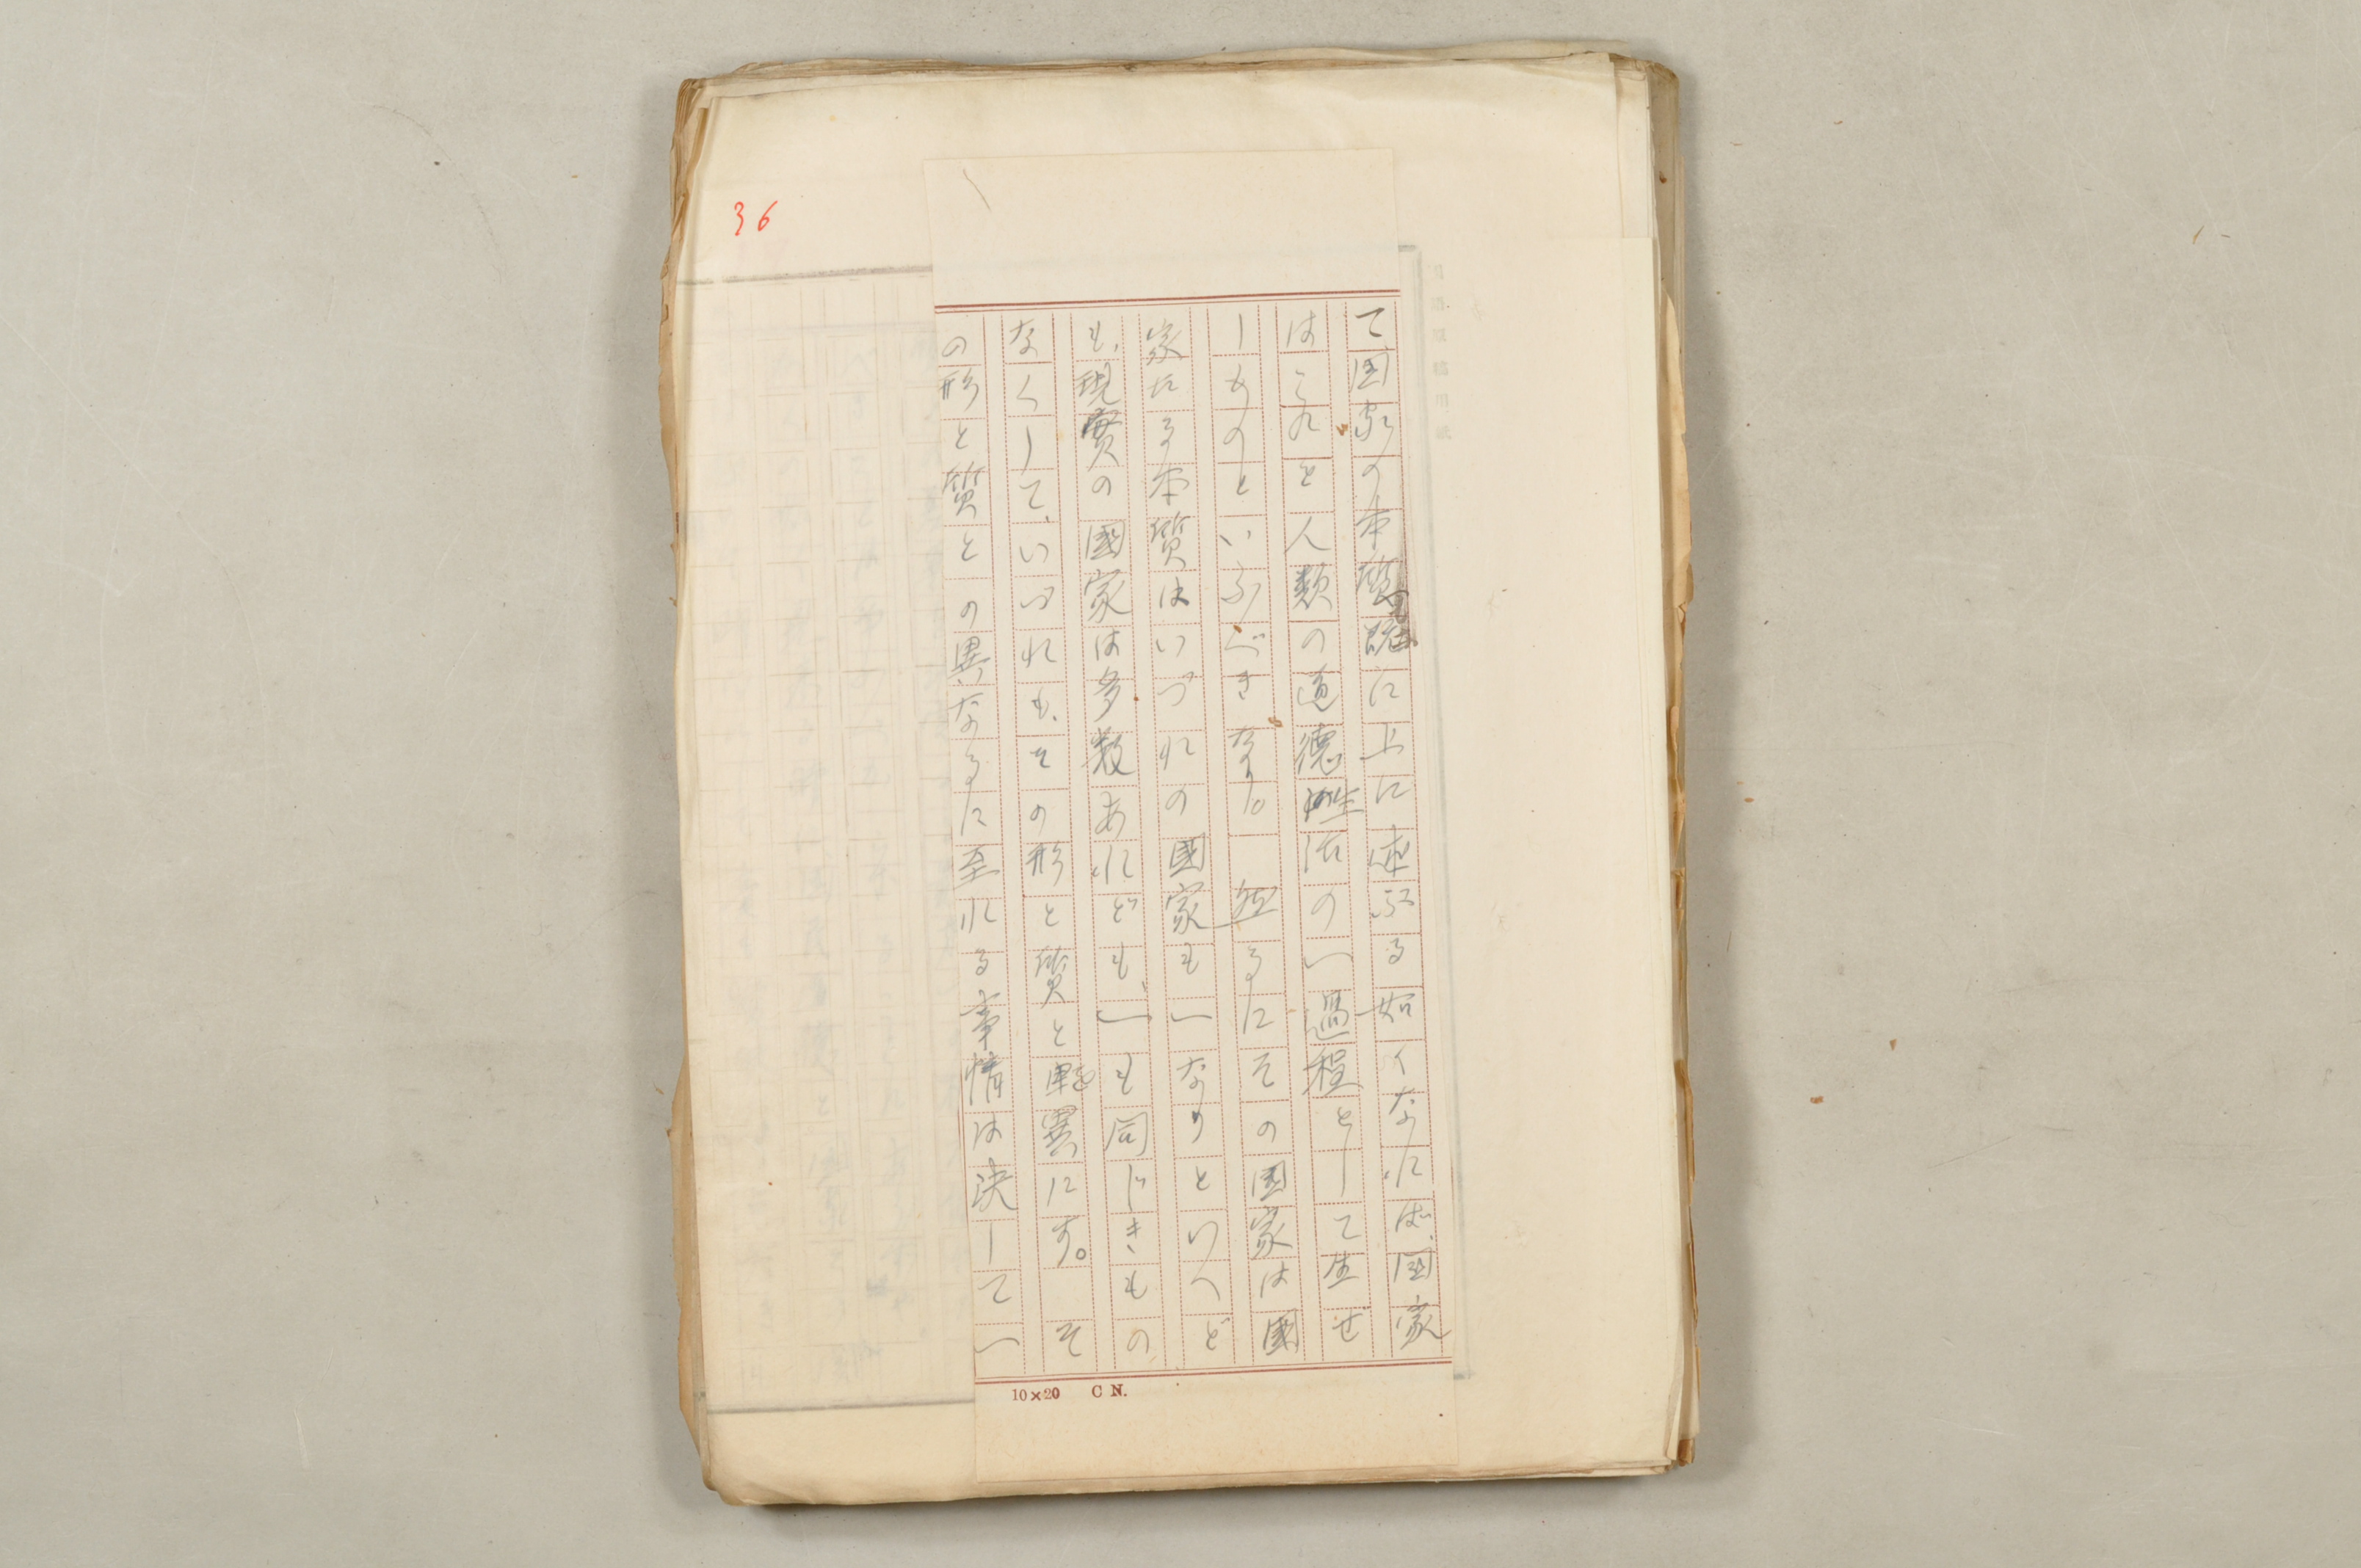 36
て、国家の本質論に上に述ぶる如くなれば、国家
はこれを人類の道徳生活の一過程として生ぜ
しものといふべきなり。 然るにその国家は國
家たる本質はいづれの國家も一なりといへど
も、現實の國家は多數あれども、一も同じきもの
なくして、いづれも、その形と質とを異にす。 そ
の形と質との異なるに至れる事情は決して一
10×20 C N.